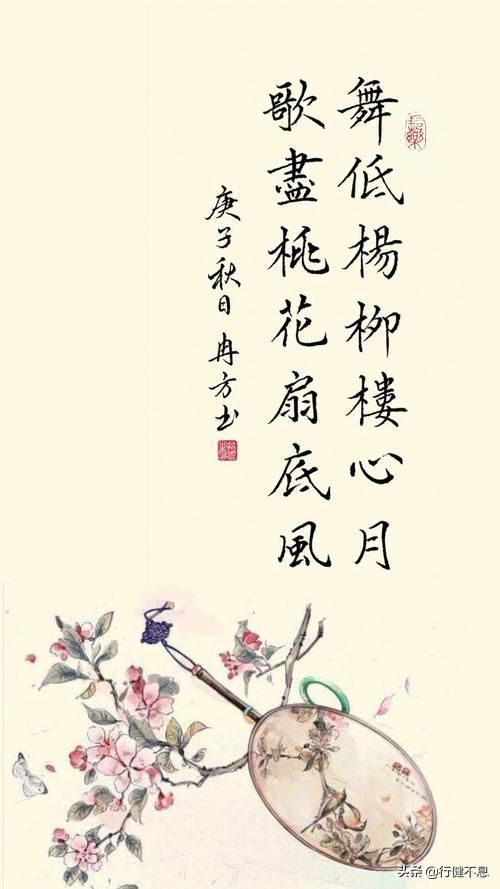 舞低楊柳樓心月
歌盡桃花扇底風
庚子秋日 冉方书
头条 @行健不息